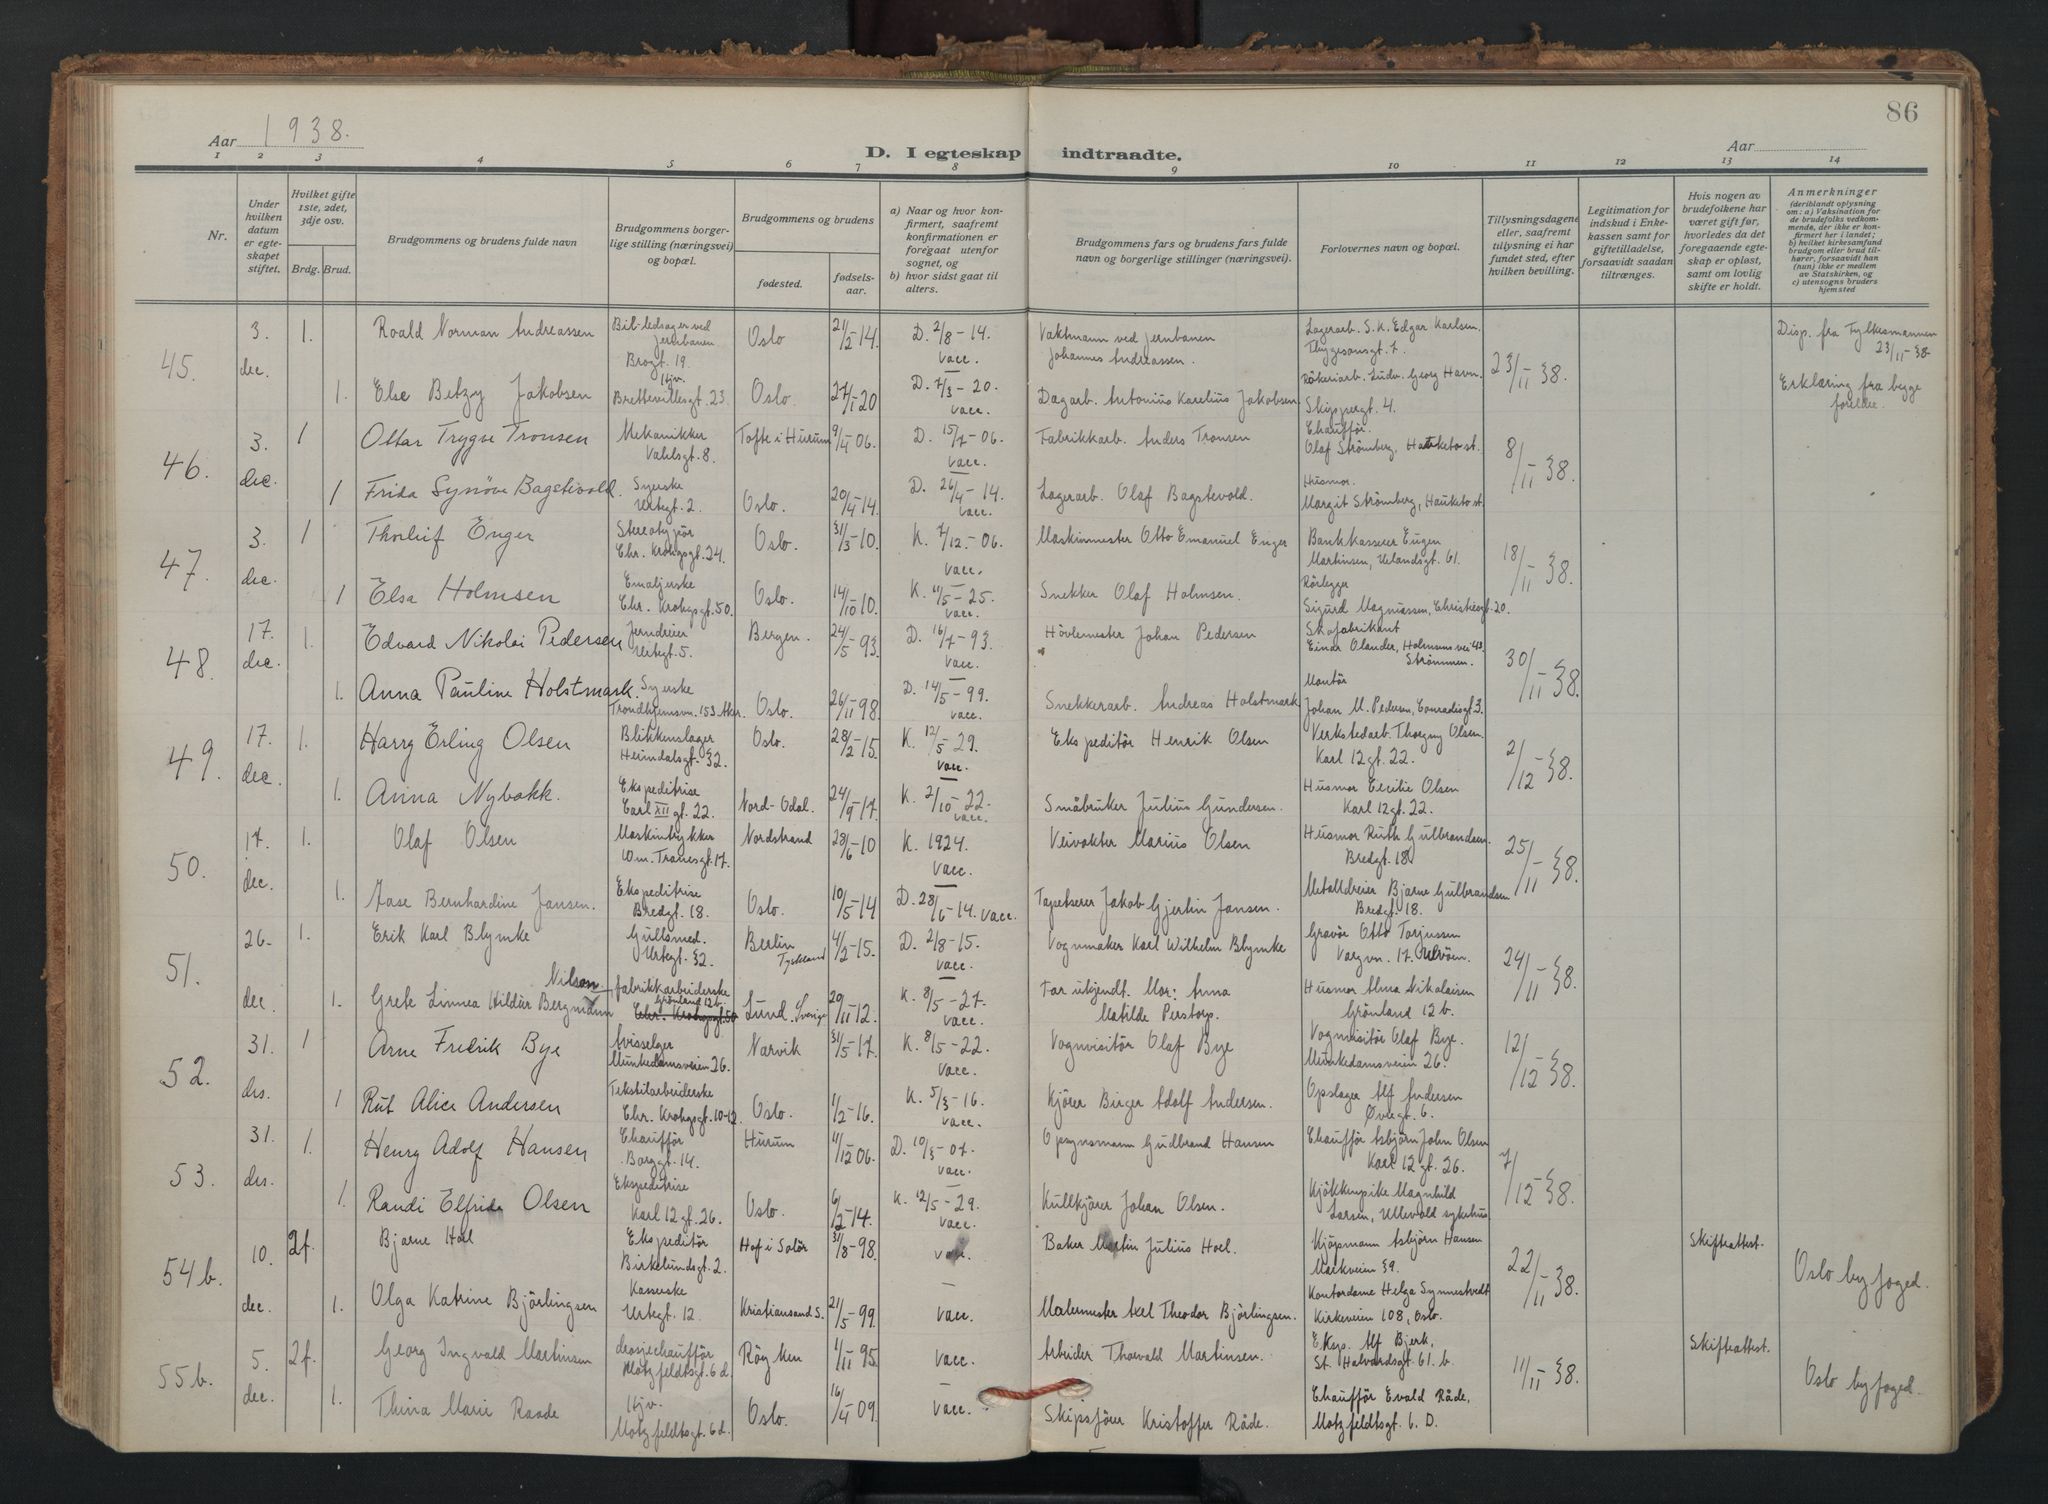 86
Aar 1938.
D. I egteskap indtraadte.
Aar
1 2 3 4 5 6 7 8 9 10 11 12 13 14
Nr.
Under hvilken datum er egteskapet stiftet.
Hvilket gifte 1ste, 2det, 3dje osv.
Brdg. Brud.
Brudgommens og brudens fulde navn
Brudgommens borgerlige stilling (næringsvei) og bopæl.
Brudgommens og brudens
fødested.
fødselsaar.
a) Naar og hvor konfirmert, saafremt konfirmationen er foregaat utenfor sognet, og
b) hvor sidst gaat til alters.
Brudgommens fars og brudens fars fulde navn og borgerlige stillinger (næringsvei).
Forlovernes navn og bopæl.
Tillysningsdagene eller, saafremt tillysning ei har fundet sted, efter hvilken bevilling.
Legitimation for indskud i Enkekassen samt for giftetilladelse, forsaavidt saadan tiltrænges.
Hvis nogen av brudefolkene har været gift før, hvorledes da det foregaaende egteskap er opløst, samt om lovlig skifte er holdt.
Anmerkninger (deriblandt oplysning om: a) Vaksination for de brudefolks vedkommende, der ikke er konfirmert her i landet; b) hvilket kirkesamfund brudgom eller brud tilhører, forsaavidt han (hun) ikke er medlem av Statskirken, og c) utensogns bruders hjemsted
45. 3. dec. 1. Roald Norman Andreassen Bil-ledsager ved Jernbanen Brogt. 19 Oslo 21/2-14. D. 2/8-14. vacc. Vaktmann ved jernbanen Johannes Andreassen. Lagerarb. S. K. Edgar Karlsen. Thygesonsgt. 7. 23/11-38. Disp. fra Fylkesmannen 23/11-38
1. Else Betzy Jakobsen Hjv. Brettevillesgt. 23 Oslo. 27/1-20 D. 7/3-20. vacc. Dagarb. Antonius Karelius Jakobsen Røkeriarb. Ludv. Georg Havn. Skippergt. 4. Erklæring fra begge foreldre.
46. 3. dec. 1 Ottar Trygve Tronsen Mekanikker Vahlsgt. 8. Tofte i Hurum 9/4-06. D. 15/7-06. vacc. Fabrikkarb. Anders Tronsen Chauffør. Olaf Strömberg, Hauketo st. 8/11-38.
1 Frida Synöve Bagstevold. Syerske Urtegt. 2. Oslo. 20/4-14. D. 26/4-14. vacc. Lagerarb. Olaf Bagstevold. Husmor. Margit Strömberg, Hauketo st.
47. 3. dec. 1 Thorleif Enger Stereotypör Chr. Krohgsgt. 24. Oslo. 31/3-10. K. 7/12-06. vacc. Maskinmester Otto Emanuel Enger Bankkasserer Eugen Martinsen, Uelandsgt. 61. 18/11-38.
1 Elsa Holmsen Emaljerske Chr. Krohgsgt. 50. Oslo. 14/10-10. K. 11/5-25. vacc. Snekker Olaf Holmsen. Rörlegger Sigurd Magnussen, Christiesgt. 20.
48. 17. dec. 1. Edvard Nikolai Pedersen Jerndreier Urtegt. 5. Bergen. 24/5-93. D. 16/7-93. vacc. Hövlemester Johan Pedersen Skofabrikant Einar Olander, Holmsens vei 43. Strömmen. 30/11-38.
1. Anna Pauline Holstmark. Syerske Trondhjemsvn. 153 Aker. Oslo. 26/11-98. D. 14/5-99. vacc. Snekkerarb. Andreas Holstmark Montör Johan M. Pedersen, Conradisgt. 3.
49. 17. dec. 1. Harry Erling Olsen Blikkenslager Heimdalsgt. 32. Oslo. 28/2-15. K. 12/5-29. vacc. Ekspeditör Henrik Olsen Verkstedarb. Thorguy Olsen. Karl 12 gt. 22. 2/12-38.
1. Anna Nybakk. Ekspeditrise Carl XII gt. 22. Nord-Odal. 24/9-17. K. 2/10-22. vacc. Småbruker Julius Gundersen. Husmor Cecilie Olsen Karl 12 gt. 22.
50. 17. dec. 1. Olaf Olsen Maskintrykker Om. Tranesgt. 17. Nordstrand 28/6-10 K. 1924. vacc. Veivokter Marius Olsen Husmor Ruth Gulbrandsen. Bredgt. 18. 25/11-38.
1. Aase Bernhardine Jansen. Ekspeditrise Bredgt. 18. Oslo. 10/5-14 D. 28/6-14. vacc. Tapetserer Jakob Gjertin Jansen. Metalldreier Bjarne Gulbrandsen Bredgt. 18.
51. 26. dec. 1. Erik Karl Blymke Gullsmed. Urtegt. 32. Berlin Tyskland 4/2-15. D. 2/8-15. vacc. Vognmaker Karl Wilhelm Blymke Gravör Otto Torjussen Vargvn. 17. 24/11-38.
1. Grete Linnea Hildur Bergman Nilsson fabrikkarbeiderske Grønland 12b. Chr. Krohgsgt. 50 Lund. Sverige 20/11-12. K. 8/5-27. vacc. Far ukjendt. Mor: Anna Matilde Perstorp. Husmor Alma Nikolaisen Grönland 12 b.
52. 31. des. 1 Arne Fredrik Bye Avisselger Munkedamsveien 26. Narvik 31/5-17. K. 8/5-22. vacc. Vognvisitör Olaf Bye Vognvisitör Olaf Bye. Munkedamsveien 26. 12/12-38.
1 Rut Alice Andersen Tekstilarbeiderske Chr. Krohgsgt. 10-12 Oslo. 1/2-16. K. 5/3-16. vacc. Kjörer Birger Adolf Andersen. Opslager Alf Andersen Øvregt. 6.
53. 31. des. 1. Henry Adolf Hansen Chaufför Borggt. 14. Hurum 11/12-06. D. 10/3-07. vacc. Opsynsmann Gudbrand Hansen Chaufför Asbjörn John Olsen Karl 12 gt. 26. 7/12-38.
1. Randi Elfride Olsen Ekspeditrise Karl 12 gt. 26. Oslo. 6/2-14. K. 12/5-29. vacc. Kullkjörer Johan Olsen. Kjökkenpike Magnhild Larsen, Ullevål sykehus.
54b. 10. dec. 2f. Bjarne Hoel Ekspeditör Birkelundsgt. 2. Hof i Solör 31/8-98. vacc. Baker Martin Julius Hoel. Kjöpmann Asbjörn Hansen Markveien 39. 22/11-38. Skifteattest. Oslo byfoged.
1. Olga Katrine Björlingsen Kasserske Urtegt. 12 Kristiansand S. 21/5-99. vacc. Malermester Axel Theodor Björlingsen. Kontordame Helga Synnestvedt Kirkeveien 108, Oslo.
55b. 5. dec. 2f. Georg Ingvald Martinsen drosjechauffør Motzfeldtsgt. 6 d. Röyken 1/11-95. vacc. Arbeider Thorvald Martinsen. Eksp. Alf Bjerk, St. Halvardsgt. 61. b. 11/11-38. Skifteattest. Oslo byfoged.
1. Thina Marie Raade Hjv. Motzfeldtsgt. 6 d. Oslo. 16/4-09. vacc. Skipsförer Kristoffer Råde. Chaufför Evald Råde, Motzfeldtsgt. 6. D.